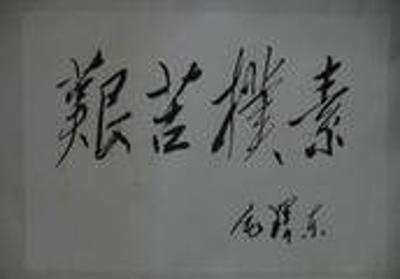 艱苦樸素
毛澤東